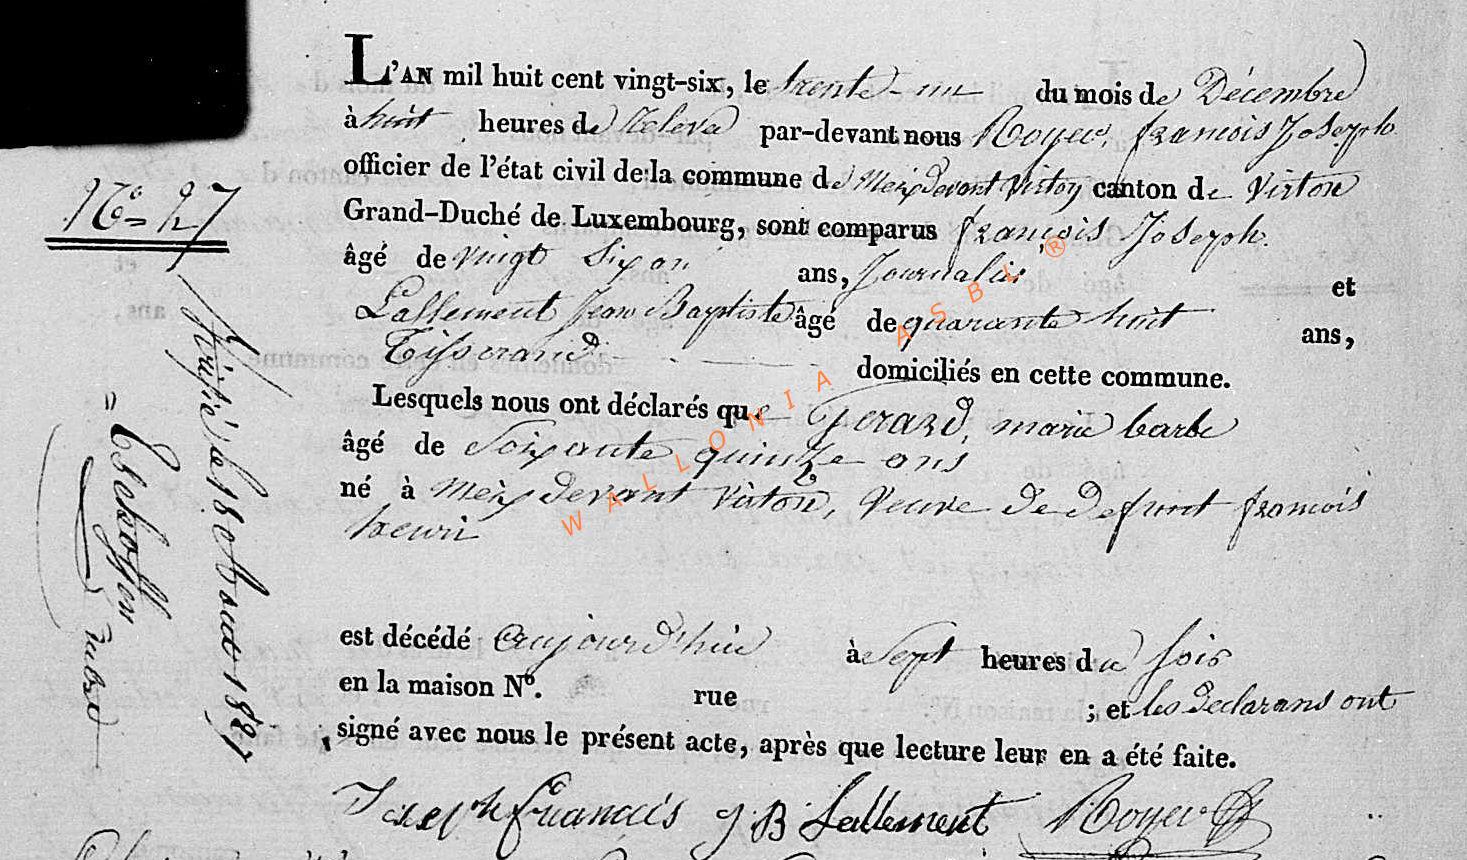 L'AN mil huit cent vingt-six, le trente-un du mois de Décembre
à huit heures de Relevé par-devant nous Royer, françois Joseph
officier de l'état civil de la commune de Meix devant Virton canton de Virton
Grand-Duché de Luxembourg, sont comparus françois Joseph.
âgé de vingt Six an ans, Journalier et
Lallement Jean Baptiste âgé de quarante huit ans,
Tisserand domiciliés en cette commune.
Lesquels nous ont déclarés que Gerard, marie barbe
âgé de Soixante quinze ans
né à Meix devant Virton, Veuve de defunt françois
henri
est décédé aujourd'hui à Sept heures du soir
en la maison N°. rue ; et les declarans ont
signé avec nous le présent acte, après que lecture leur en a été faite.
Joseph françois J B Lallement Royer
N° 27
le 18 Aout 1827
WALLONIA ASBL®